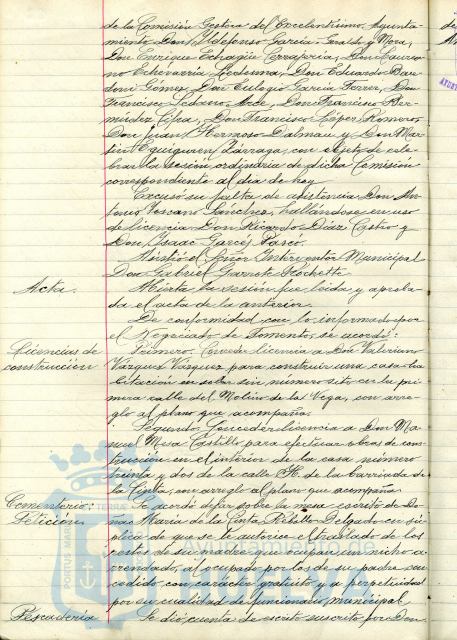 de la Comisión Gestora del Excelentísimo Ayunta-
miento Don Ildefonso García-Geraldo y Mora,
Don Enrique Echagüe Carraferia, Don Lauria-
no Echevarría Ledesma, Don Eduardo Bar-
doni Gómez, Don Eulogio García Ferrer, Don
Francisco Sedano Arce, Don Francisco Ber-
múdez Cifra, Don Francisco López Romero,
Don Juan Hermoso Dalmau y Don Mar-
tín Eguiguren Lárraga, con objeto de cele-
brar la sesión ordinaria de dicha Comisión
correspondiente al día de hoy
Excusó su falta de asistencia Don An-
tonio Toscano Sánchez, hallándose en uso
de licencia Don Ricardo Díaz Castro y
Don Isaac Garcés Pascó.
Asistió el Señor Interventor Municipal
Don Gabriel Garrote Flochette.
Acta. Abierta la sesión fue leída y aproba-
da el acta de la anterior.
De conformidad con lo informado por
el Negociado de Fomento, se acordó:
Licencias de construcción Primero. Conceder licencia a Don Valeriano
Vázquez Vázquez para construir una casa-ha-
bitación en solar sin número sito en la pri-
mera calle del Molino de la Vega, con arre-
glo al plano que acompaña.
Segundo. Conceder licencia a Don Ma-
nuel Mesa Castillo para efectuar obras de cons-
trucción en el interior de la casa número
treinta y dos de la calle H. de la barriada de
la Cinta, con arreglo al plano que acompaña.
Cementerio: Petición Se acordó dejar sobre la mesa escrito de Do-
ña María de la Cinta Rebollo Delgado en sú-
plica de que se autorice el traslado de los
restos de su madre que ocupan un nicho a-
rrendado, al ocupado por los de su padre con-
cedido con carácter gratuito y a perpetuidad
por su cualidad de funcionario municipal.
Pescadería Se dió cuenta de escrito suscrito por Don